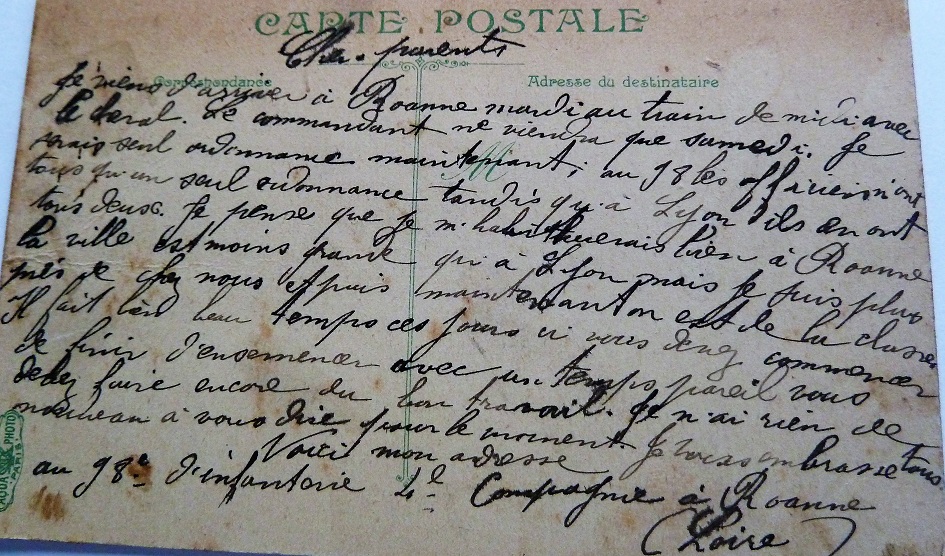 CARTE POSTALE
Cher parents
Correspondance
Adresse du destinataire
Je viens d'arriver à Roanne mardi au train de midi avec
le cheval. Le commandant ne viendra que samedi. Je
serais seul ordonnance maintenant, au 98 les officiers n'ont
tous qu'un seul ordonnance tandis qu'à Lyon ils en ont
tous deux. Je pense que je m'habithuerais bien à Roanne
la ville est moins grande qui à Lyon mais je suis plus
près de chez nous et puis maintenant on est de la classe
Il fait bien beau temps ces jours ci vous devez commencer
de finir d'ensemencer avec un temps pareil vous
devez faire encore du bon travail. Je n'ai rien de
nouveau à vous dire pour le moment. Je vous embrasse tous.
Voici mon adresse
au 98e d'infanterie 4e Compagnie à Roanne
(Loire)
AQUA PHOTO
PARIS